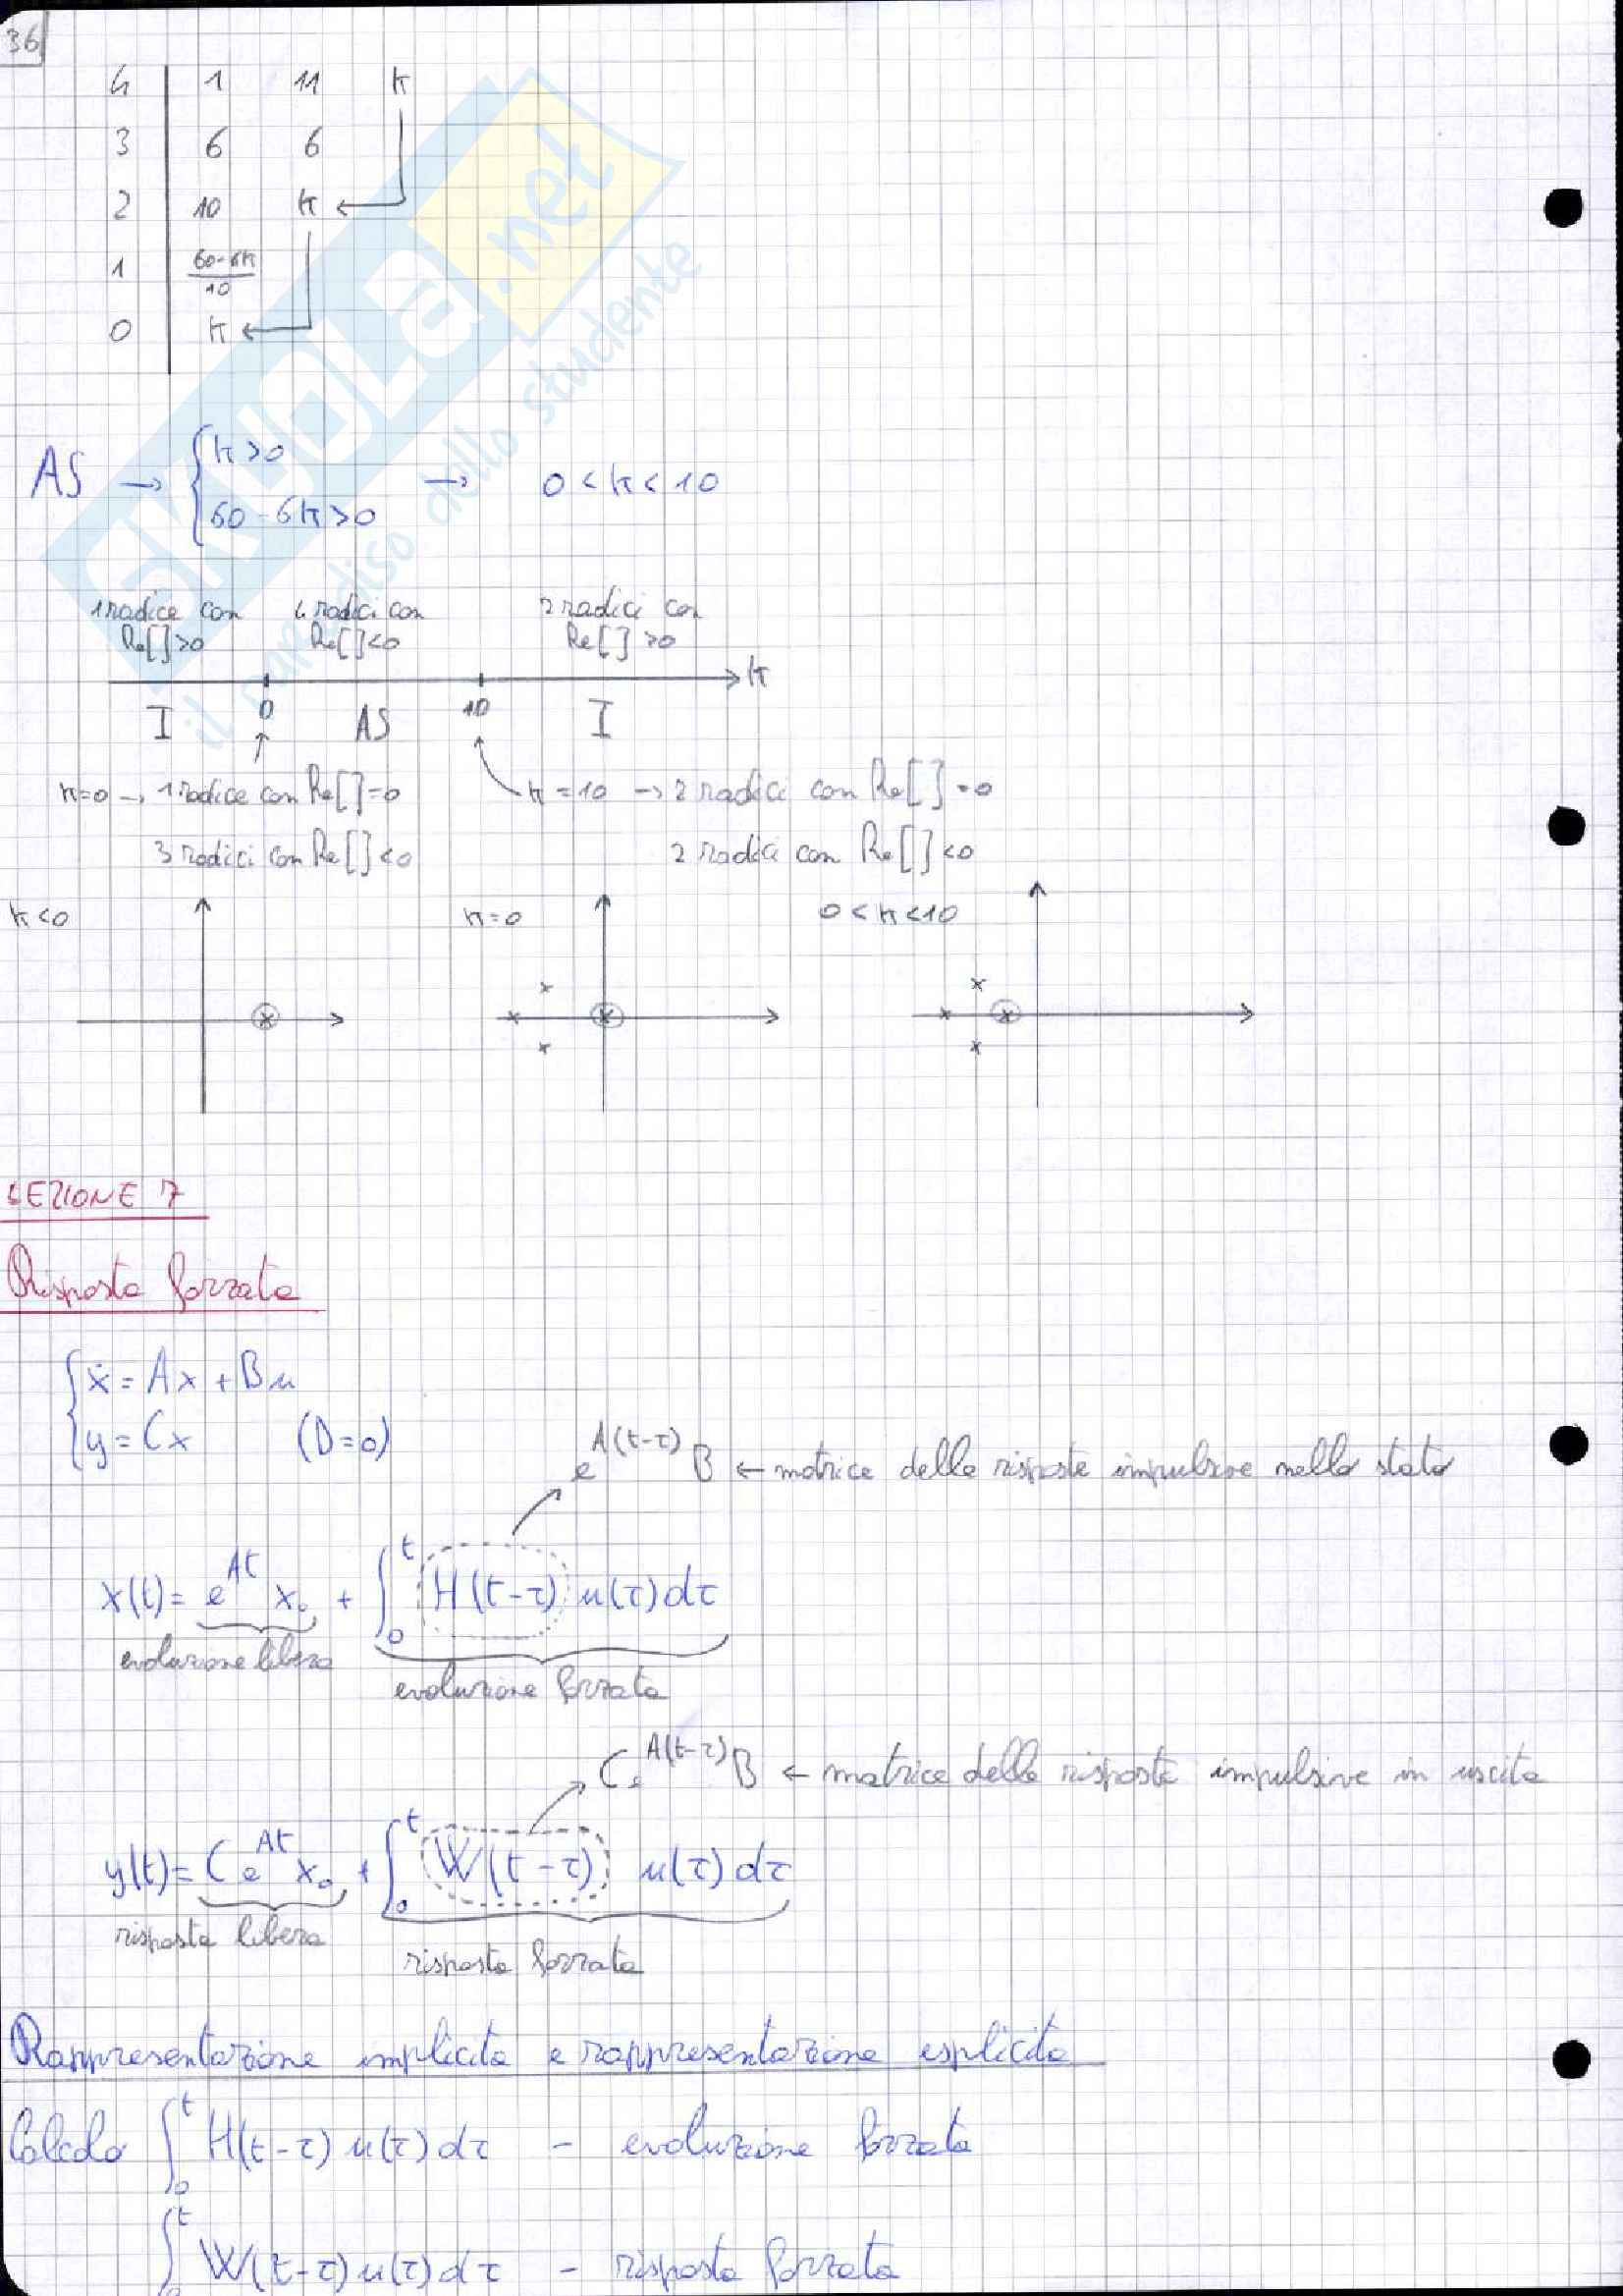 36
4 | 1 11 K
3 | 6 6
2 | 10 K ←
1 | 60-6K / 10
0 | K ←
SKUOLA.net
il paradiso dello studente
AS → { K>0
60-6K>0 → 0<K<10
1 radice con Re[]>0
4 radici con Re[]<0
2 radici con Re[]>0
K
I 0 AS 10 I
K=0 → 1 radice con Re[]=0
3 radici con Re[]<0
K=10 → 2 radici con Re[]=0
2 radici con Re[]<0
K<0
K=0
0<K<10
LEZIONE 7
Risposta forzata
{ ẋ = Ax + Bu
y = Cx (D=0)
e^A(t-τ) B ← matrice delle risposte impulsive nello stato
x(t) = e^At x₀ + ∫₀^t H(t-τ) u(τ)dτ
evoluzione libera
evoluzione forzata
C e^A(t-τ) B ← matrice delle risposte impulsive in uscita
y(t) = C e^At x₀ + ∫₀^t W(t-τ) u(τ)dτ
risposta libera
risposta forzata
Rappresentazione implicita e rappresentazione esplicita
Calcolo ∫₀^t H(t-τ) u(τ)dτ - evoluzione forzata
∫₀^t W(t-τ) u(τ)dτ - risposta forzata